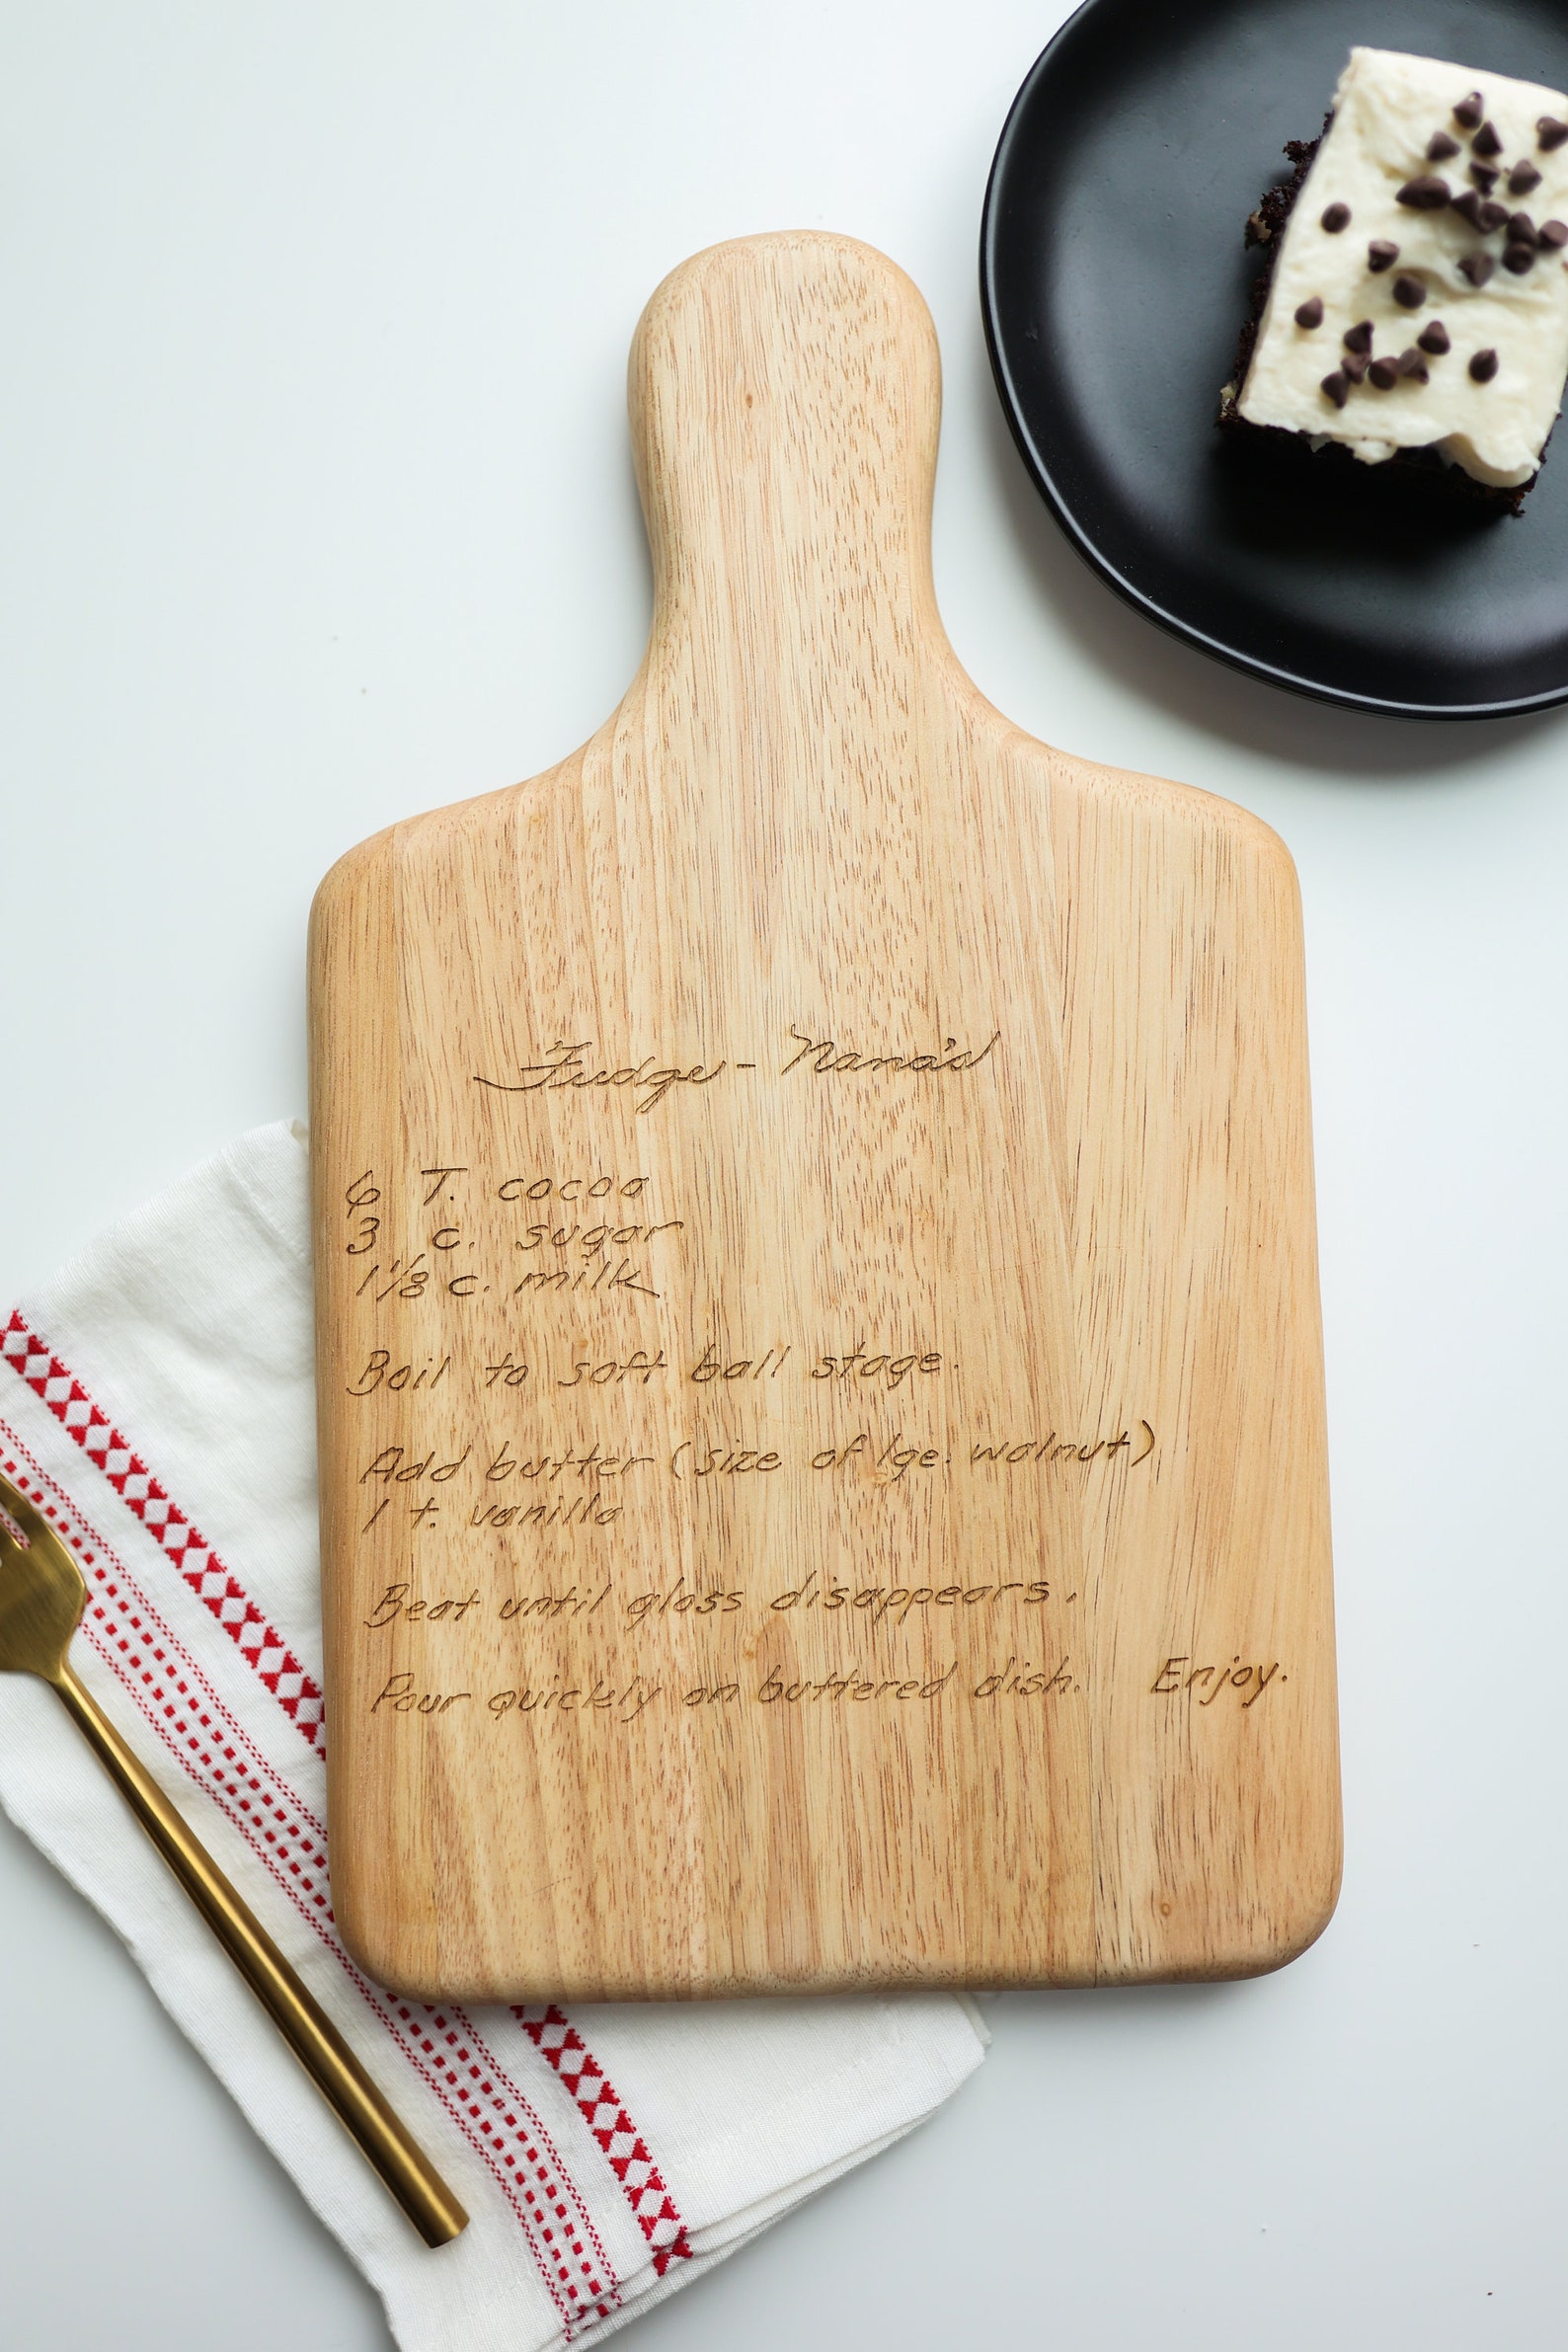 Fudge - Nana's
6 T. cocoa
3 c. sugar
1 1/8 c. milk
Boil to soft ball stage.
Add butter (size of lge. walnut)
1 t. vanilla
Beat until gloss disappears.
Pour quickly on buttered dish. Enjoy.